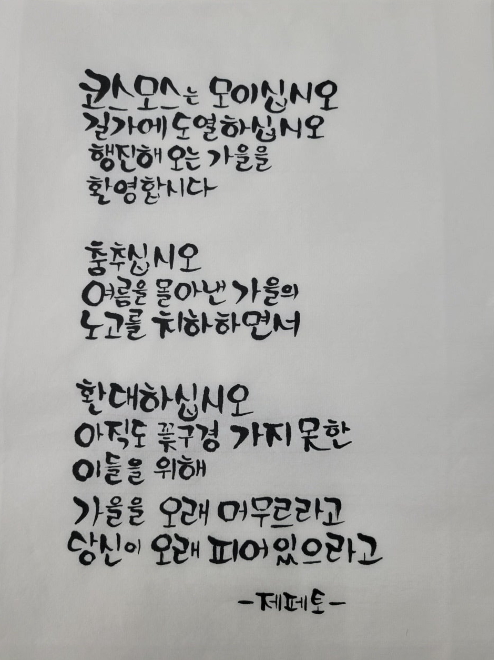 코스모스는 모이십시오
길가에 도열하십시오
행진해 오는 가을을
환영합시다
춤추십시오
여름을 몰아낸 가을의
노고를 치하하면서
환대하십시오
아직도 꽃구경 가지 못한
이들을 위해
가을을 오래 머무르라고
당신이 오래 피어있으라고
-제페토-